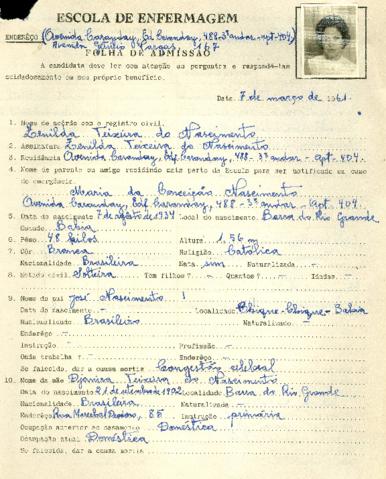 ESCOLA DE ENFERMAGEM
ENDERÊÇO (Avenida Caranday, Ed. Caranday, 488-3º andar-apt-404)
Avenida Getúlio Vargas, 167
FOLHA DE ADMISSÃO
A candidata deve ler com atenção as perguntas e respondê-las
cuidadosamente em seu próprio benefício.
Data 7 de março de 1961.
1. Nome de acôrdo com o registro civil.
Zenilda Teixeira do Nascimento
2. Assinatura Zenilda Teixeira do Nascimento
3. Residência Avenida Caranday, Edf. Caranday, 488-3º andar-Apt. 404.
4. Nome de parente ou amigo residindo mais perto da Escola para ser notificado em caso
de emergência.
Maria da Conceição Nascimento
Avenida Caranday, Edf. Caranday, 488-3º andar-Apt-404.
5. Data do nascimento 7 de agôsto de 1934 Local do nascimento Barra do Rio Grande
Estado Bahia
6. Pêso 48 kilos Altura 1,56 m
7. Côr Branca Religião Católica
Nacionalidade Brasileira Nata sim Naturalizada -
8. Estado civil Solteira Tem filhos? - Quantos? - Idades -
9. Nome do pai José Nascimento
Data do nascimento - Localidade Chique-Chique-Bahia
Nacionalidade Brasileiro Naturalizado -
Enderêço -
Instrução - Profissão -
Onde trabalha? - Enderêço -
Se falecido, dar a causa mortis Congestão cerebral
10. Nome da mãe Teixeira do Nascimento
Data do nascimento 21 de setembro 1892 Localidade Barra do Rio Grande
Nacionalidade Brasileira Naturalizada -
Enderêço Rua Marechal Deodoro, 85 Instrução primária
Ocupação anterior ao casamento Doméstica
Ocupação atual Doméstica
Se falecida, dar a causa mortis -